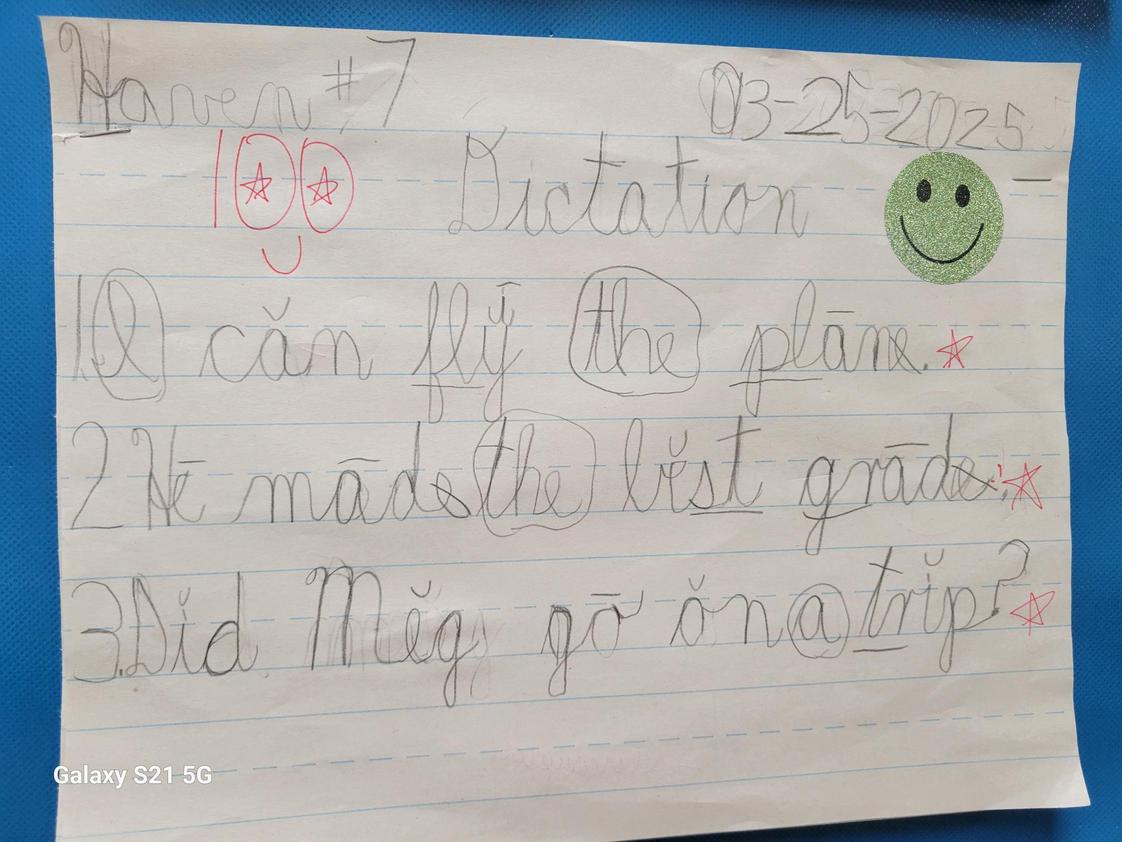 Haven #7 03-25-2025
100 Dictation
1. I căn flȳ the plāne.
2 Hē māde the bĕst grāde.
3. Dĭd Mĕg gō ŏn a trĭp?
Galaxy S21 5G